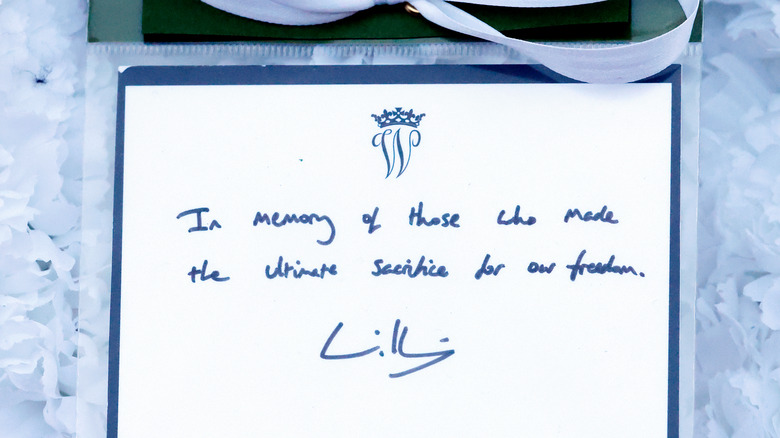 W
In memory of those who made
the ultimate sacrifice for our freedom.
William